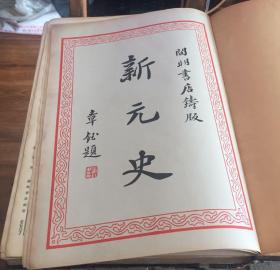 開明書店鑄版
新元史
章鈺題